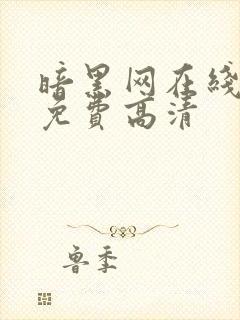 暗黑网在线
免费高清
鲁季